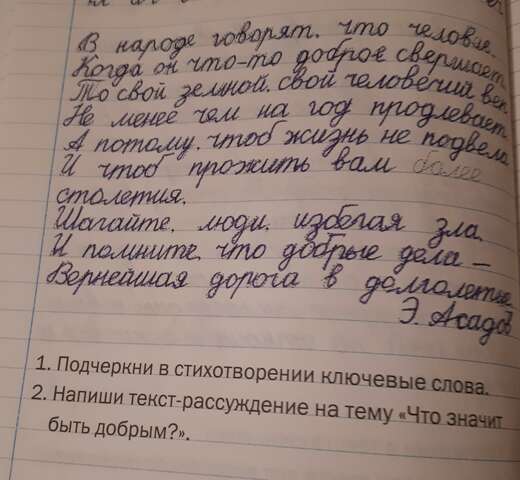 В народе говорят, что человек,
Когда он что-то доброе свершает,
То свой земной, свой человечий век
Не менее чем на год продлевает.
А потому, чтоб жизнь не подвела
И чтоб прожить вам более
столетия,
Шагайте, люди, избегая зла,
И помните, что добрые дела —
Вернейшая дорога в долголетье.
Э. Асадов
1. Подчеркни в стихотворении ключевые слова.
2. Напиши текст-рассуждение на тему «Что значит
быть добрым?».